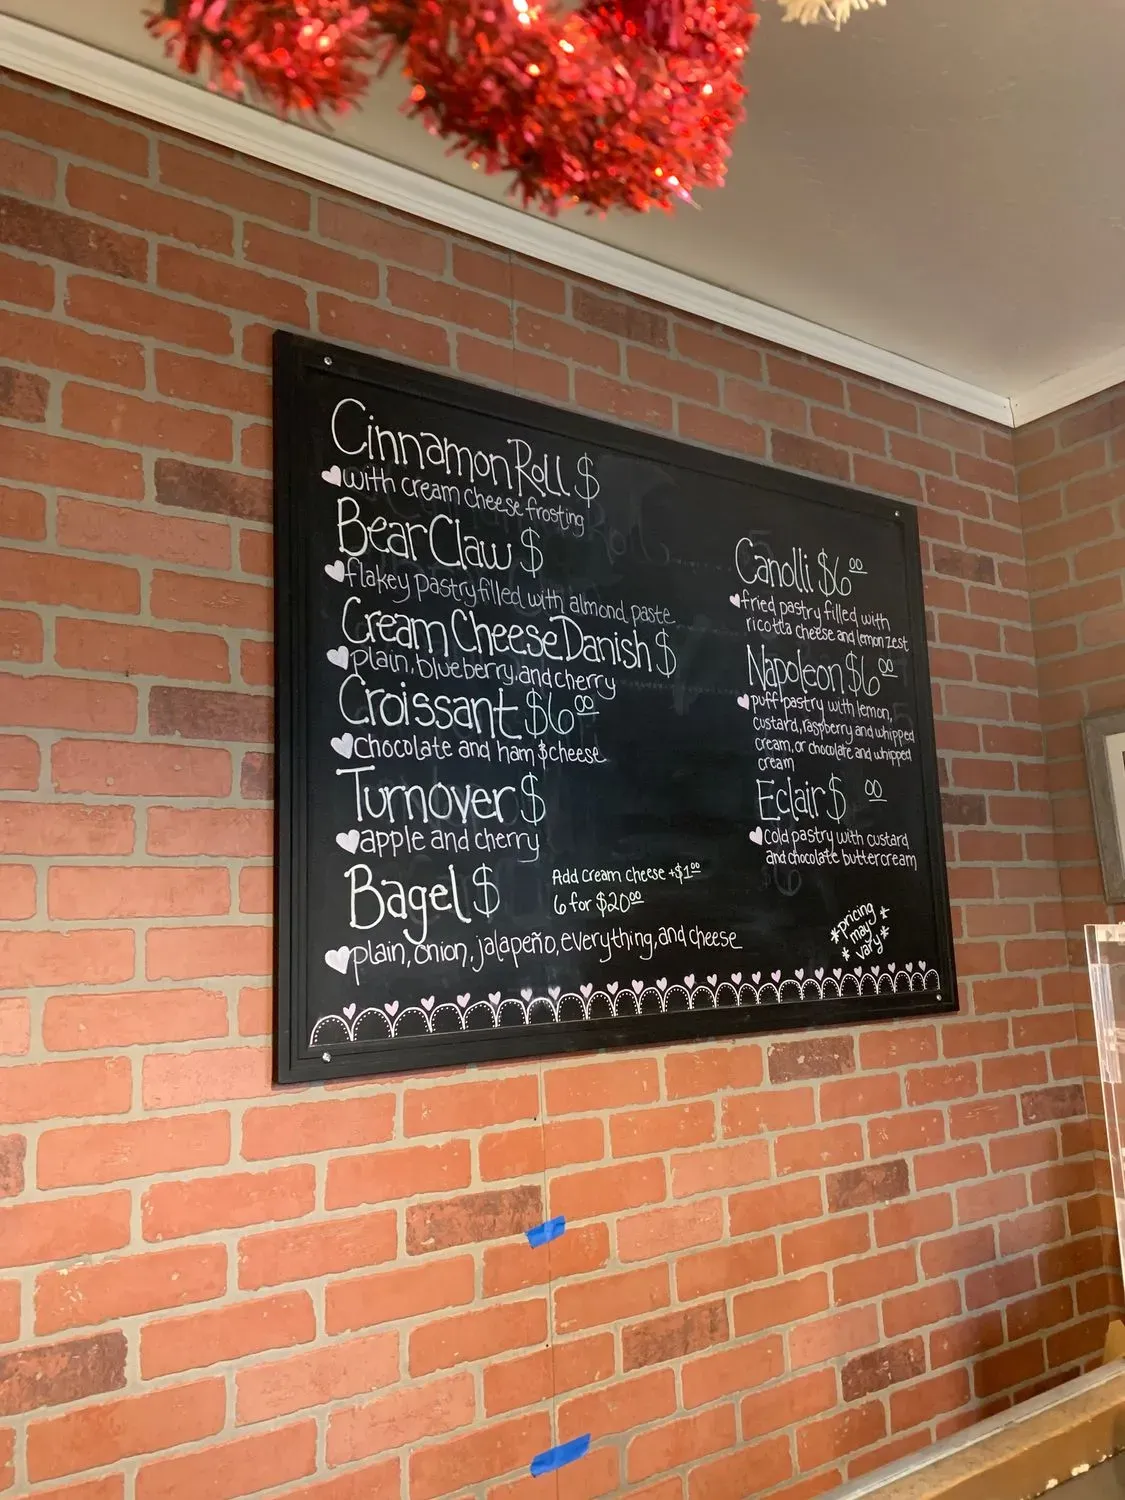 Cinnamon Roll $
with cream cheese frosting
Bear Claw $
flakey pastry filled with almond paste
Cream Cheese Danish $
plain, blueberry, and cherry
Croissant $6.00
chocolate and ham $ cheese
Turnover $
apple and cherry
Bagel $
Add cream cheese +$1.00
6 for $20.00
plain, onion, jalapeño, everything, and cheese
Canolli $6.00
fried pastry filled with
ricotta cheese and lemon zest
Napoleon $6.00
puff pastry with lemon,
custard, raspberry and whipped
cream, or chocolate and whipped
cream
Eclair $ 00
cold pastry with custard
and chocolate buttercream
*pricing*
may
*vary*